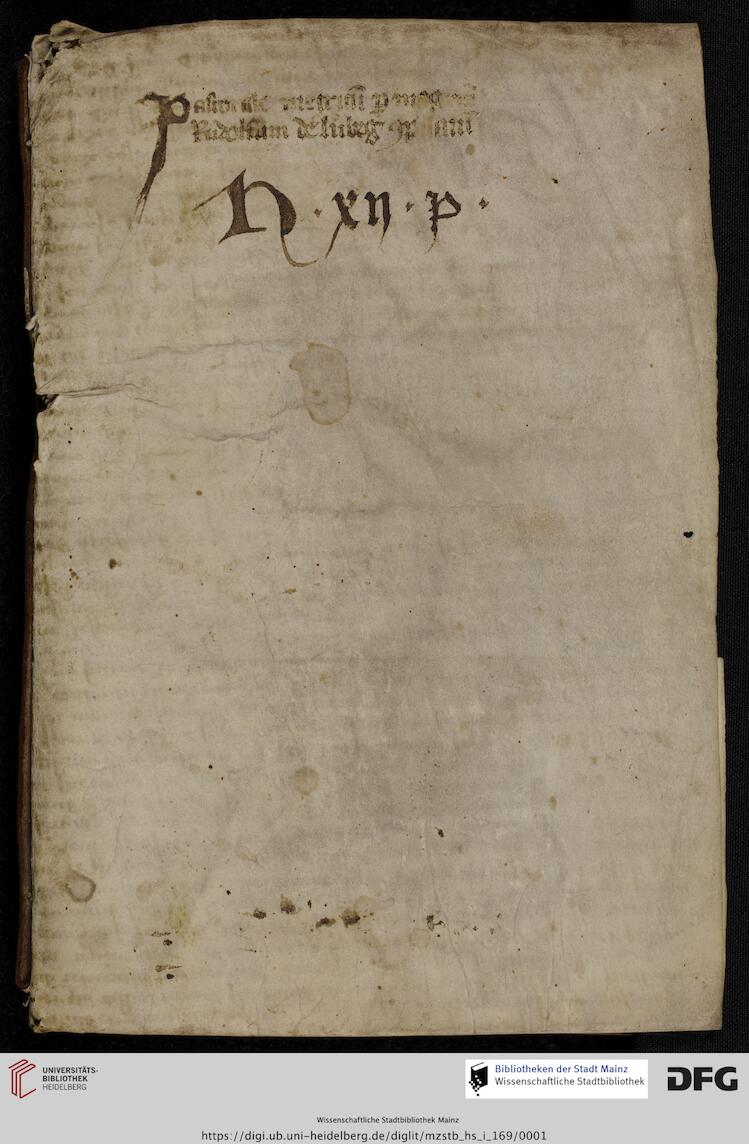 Pastorale metricū ꝑ magr̄m
Rudolfum de lübeg ꝯpilatū
N · xij · p ·
UNIVERSITÄTS-
BIBLIOTHEK
HEIDELBERG
Bibliotheken der Stadt Mainz
Wissenschaftliche Stadtbibliothek
DFG
Wissenschaftliche Stadtbibliothek Mainz
https://digi.ub.uni-heidelberg.de/diglit/mzstb_hs_i_169/0001